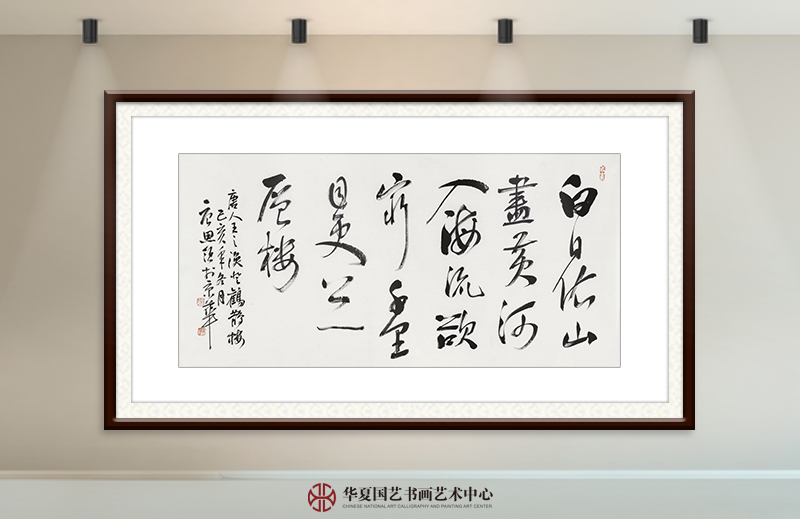 白日依山
盡黄河
入海流欲
窮千里
目更上一
层楼
唐人王之涣登鸛鵲楼
己亥年冬月
於京華
华夏国艺书画艺术中心
CHINESE NATIONAL ART CALLIGRAPHY AND PAINTING ART CENTER